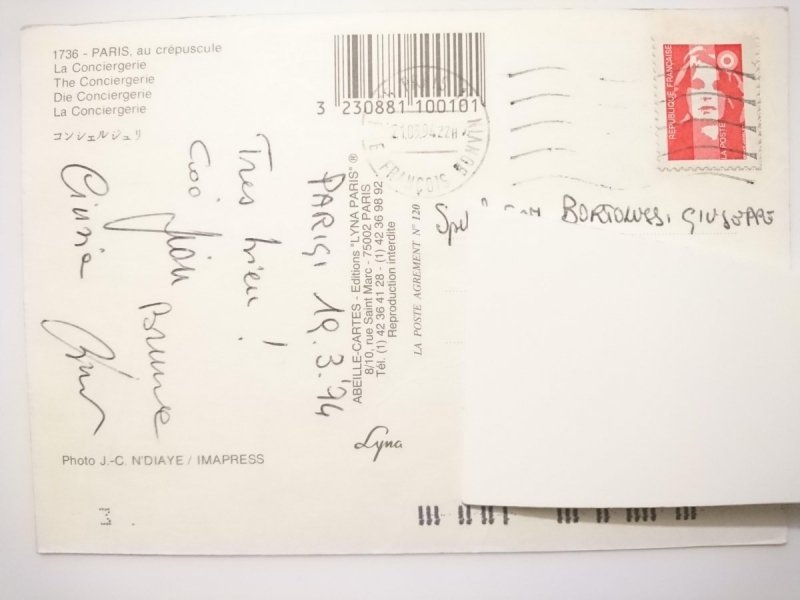 1736 - PARIS, au crépuscule
La Conciergerie
The Conciergerie
Die Conciergerie
La Conciergerie
コンシェルジュリ
3 230881 100101
PARIS
21.03.94 22H
FRANÇOIS
RÉPUBLIQUE FRANÇAISE
LA POSTE
BORTOLUSSI GIUSEPPE
PARIGI 19.3.'94
Tres bien!
Ciao
Gian
Bruna
Cinzia
ABEILLE-CARTES - Editions "LYNA PARIS" ®
8/10, rue Saint Marc - 75002 PARIS
Tél. (1) 42 36 41 28 - (1) 42 36 98 92
Reproduction interdite
LA POSTE AGREMENT N° 120
Lyna
Photo J.-C. N'DIAYE / IMAPRESS